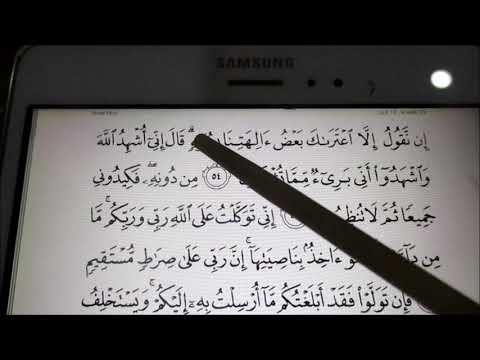 SAMSUNG
إِن نَّقُولُ إِلَّا ٱعْتَرَىٰكَ بَعْضُ ءَالِهَتِنَا قَالَ إِنِّىٓ أُشْهِدُ ٱللَّهَ
وَٱشْهَدُوٓا۟ أَنِّى بَرِىٓءٌ ٥٤ مِن دُونِهِۦ ۖ فَكِيدُونِى
جَمِيعًا ثُمَّ لَا إِنِّى تَوَكَّلْتُ عَلَى ٱللَّهِ رَبِّى وَرَبِّكُم ۚ مَّا
مِن ءَاخِذٌۢ بِنَاصِيَتِهَآ ۚ إِنَّ رَبِّى عَلَىٰ صِرَٰطٍ مُّسْتَقِيمٍ
فَإِن تَوَلَّوْا۟ فَقَدْ أَبْلَغْتُكُم مَّآ أُرْسِلْتُ بِهِۦٓ إِلَيْكُمْ ۚ وَيَسْتَخْلِفُ